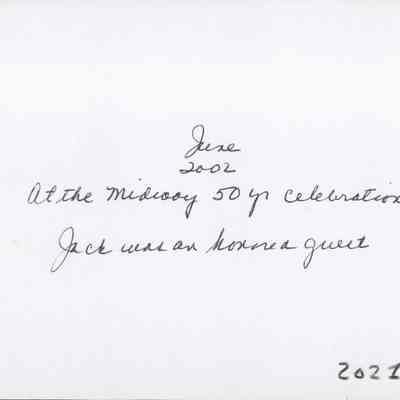 June
2002
At the Midway 50 yr celebration
Jack was an honored guest
2021